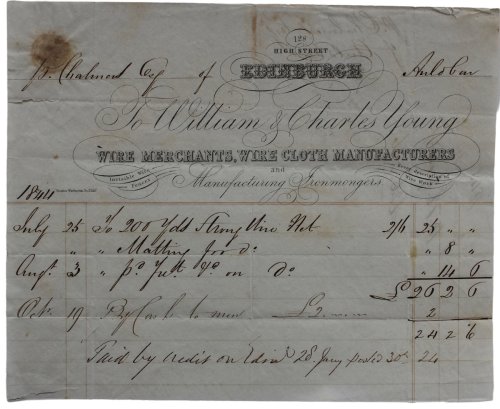 128
HIGH STREET
EDINBURGH
P. Chalmers Esq of Auldbar
To William & Charles Young
WIRE MERCHANTS, WIRE CLOTH MANUFACTURERS
Invisible Wire Fences and Every description of Wire Work
Manufacturing Ironmongers
1844
July 25 To 200 Yds Strong Wire Net 2/6 25 " "
" " Matting for do " 8 "
Augt 3 " pd on do " 14 6
£ 26 2 6
Oct. 19 By Cash to £2 2
24 2 6
Paid by credit on 28 Jany posted 30 24